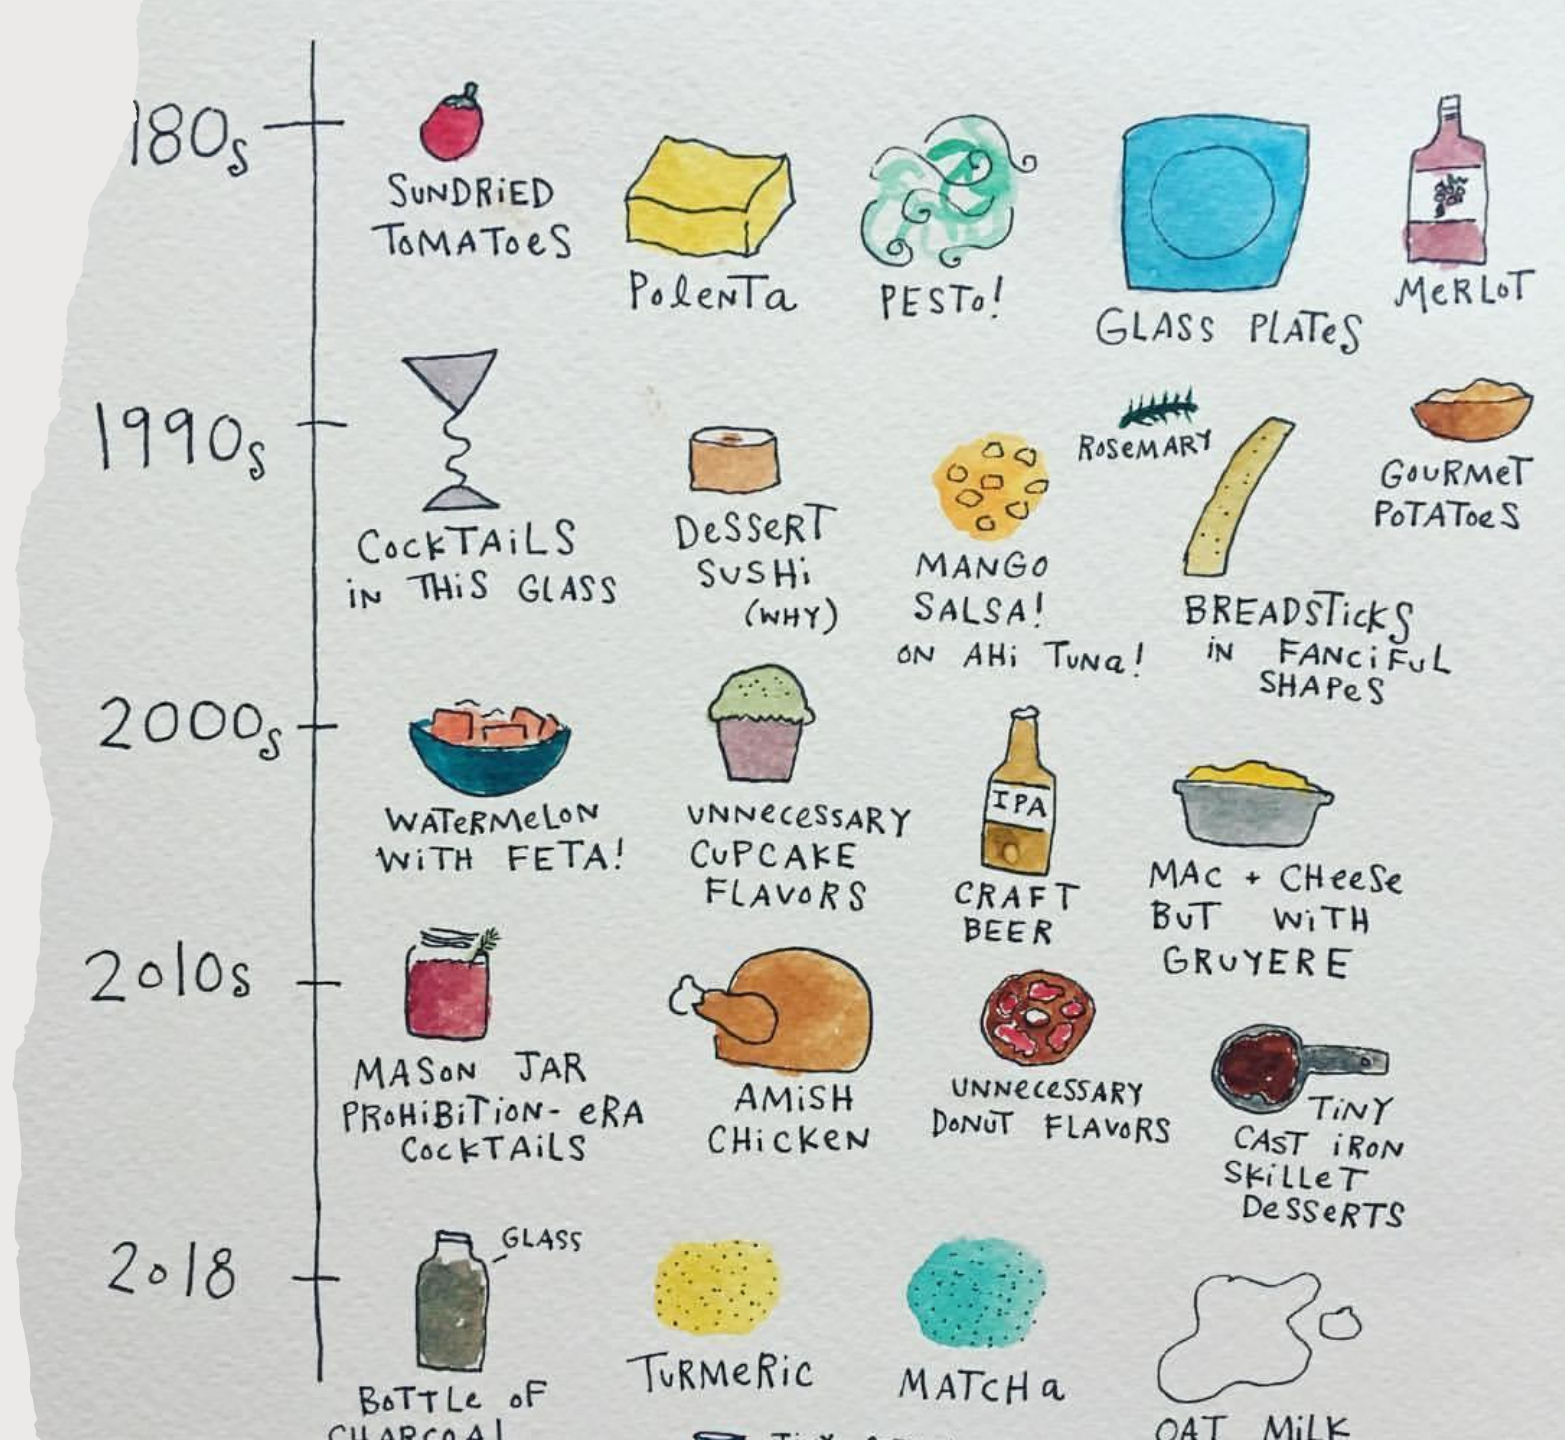 180s
SUNDRIED
TOMATOES
POLENTA
PESTO!
GLASS PLATES
MERLOT
1990s
COCKTAILS
IN THIS GLASS
DESSERT
SUSHI
(WHY)
MANGO
SALSA!
ON AHI TUNA!
ROSEMARY
BREADSTICKS
IN FANCIFUL
SHAPES
GOURMET
POTATOES
2000s
WATERMELON
WITH FETA!
UNNECESSARY
CUPCAKE
FLAVORS
IPA
CRAFT
BEER
MAC + CHEESE
BUT WITH
GRUYERE
2010s
MASON JAR
PROHIBITION-ERA
COCKTAILS
AMISH
CHICKEN
UNNECESSARY
DONUT FLAVORS
TINY
CAST IRON
SKILLET
DESSERTS
2018
GLASS
BOTTLE OF
CHARCOAL
TURMERIC
MATCHA
OAT MILK